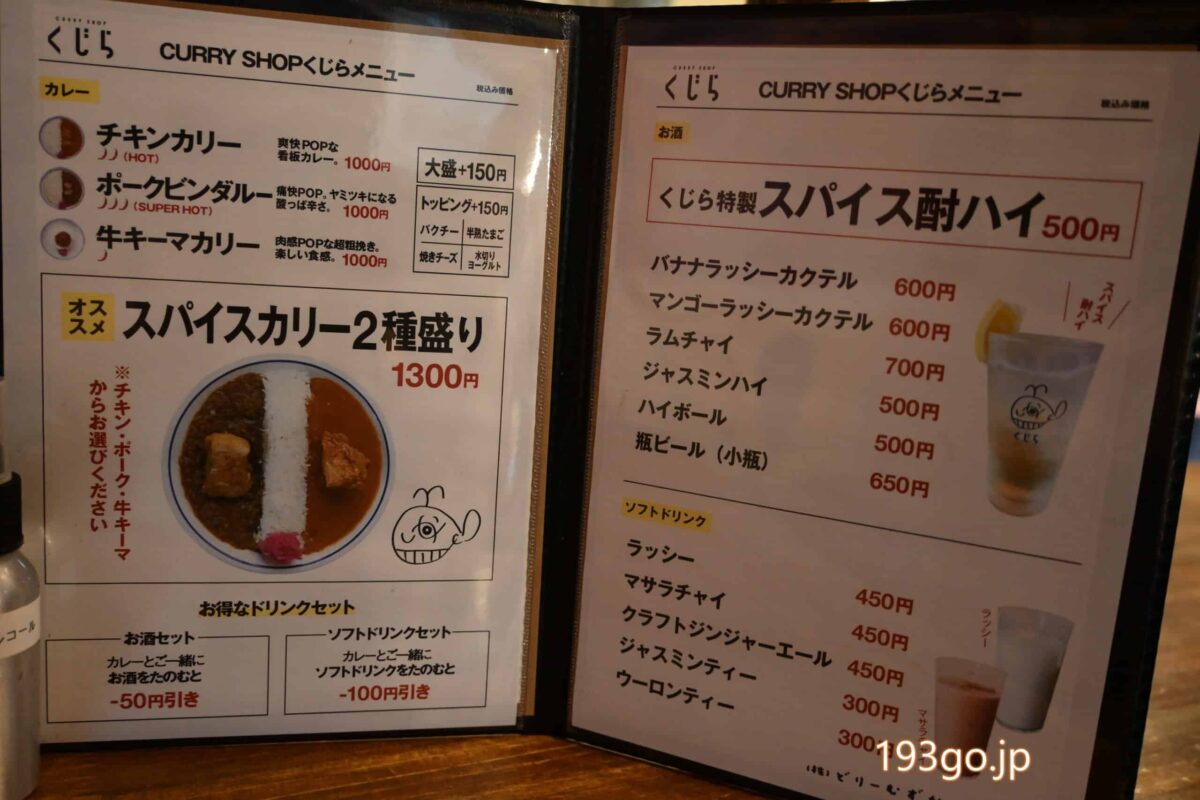 CURRY SHOP
くじら
CURRY SHOPくじらメニュー
税込み価格
カレー
チキンカリー
(HOT)
爽快POPな
看板カレー。1000円
ポークビンダルー
(SUPER HOT)
痛快POP。ヤミツキになる
腹っぱ辛さ。1000円
牛キーマカリー
肉感POPな超粗挽き。
楽しい食感。1000円
大盛+150円
トッピング+150円
パクチー 半熟たまご
焼きチーズ 水切り
ヨーグルト
オス
スメ
スパイスカリー2種盛り
1300円
※チキン・ポーク・牛キーマ
からお選びください
お得なドリンクセット
お酒セット
カレーとご一緒に
お酒をたのむと
-50円引き
ソフトドリンクセット
カレーとご一緒に
ソフトドリンクをたのむと
-100円引き
コール
CURRY SHOP
くじら
CURRY SHOPくじらメニュー
税込み価格
お酒
くじら特製スパイス酎ハイ500円
バナナラッシーカクテル 600円
マンゴーラッシーカクテル 600円
ラムチャイ 700円
ジャスミンハイ 500円
ハイボール 500円
瓶ビール（小瓶） 650円
スパイス
酎ハイ
くじら
ソフトドリンク
ラッシー 450円
マサラチャイ 450円
クラフトジンジャーエール 450円
ジャスミンティー 300円
ウーロンティー 300円
ラッシー
マサラ
193go.jp
(株)どりーむず